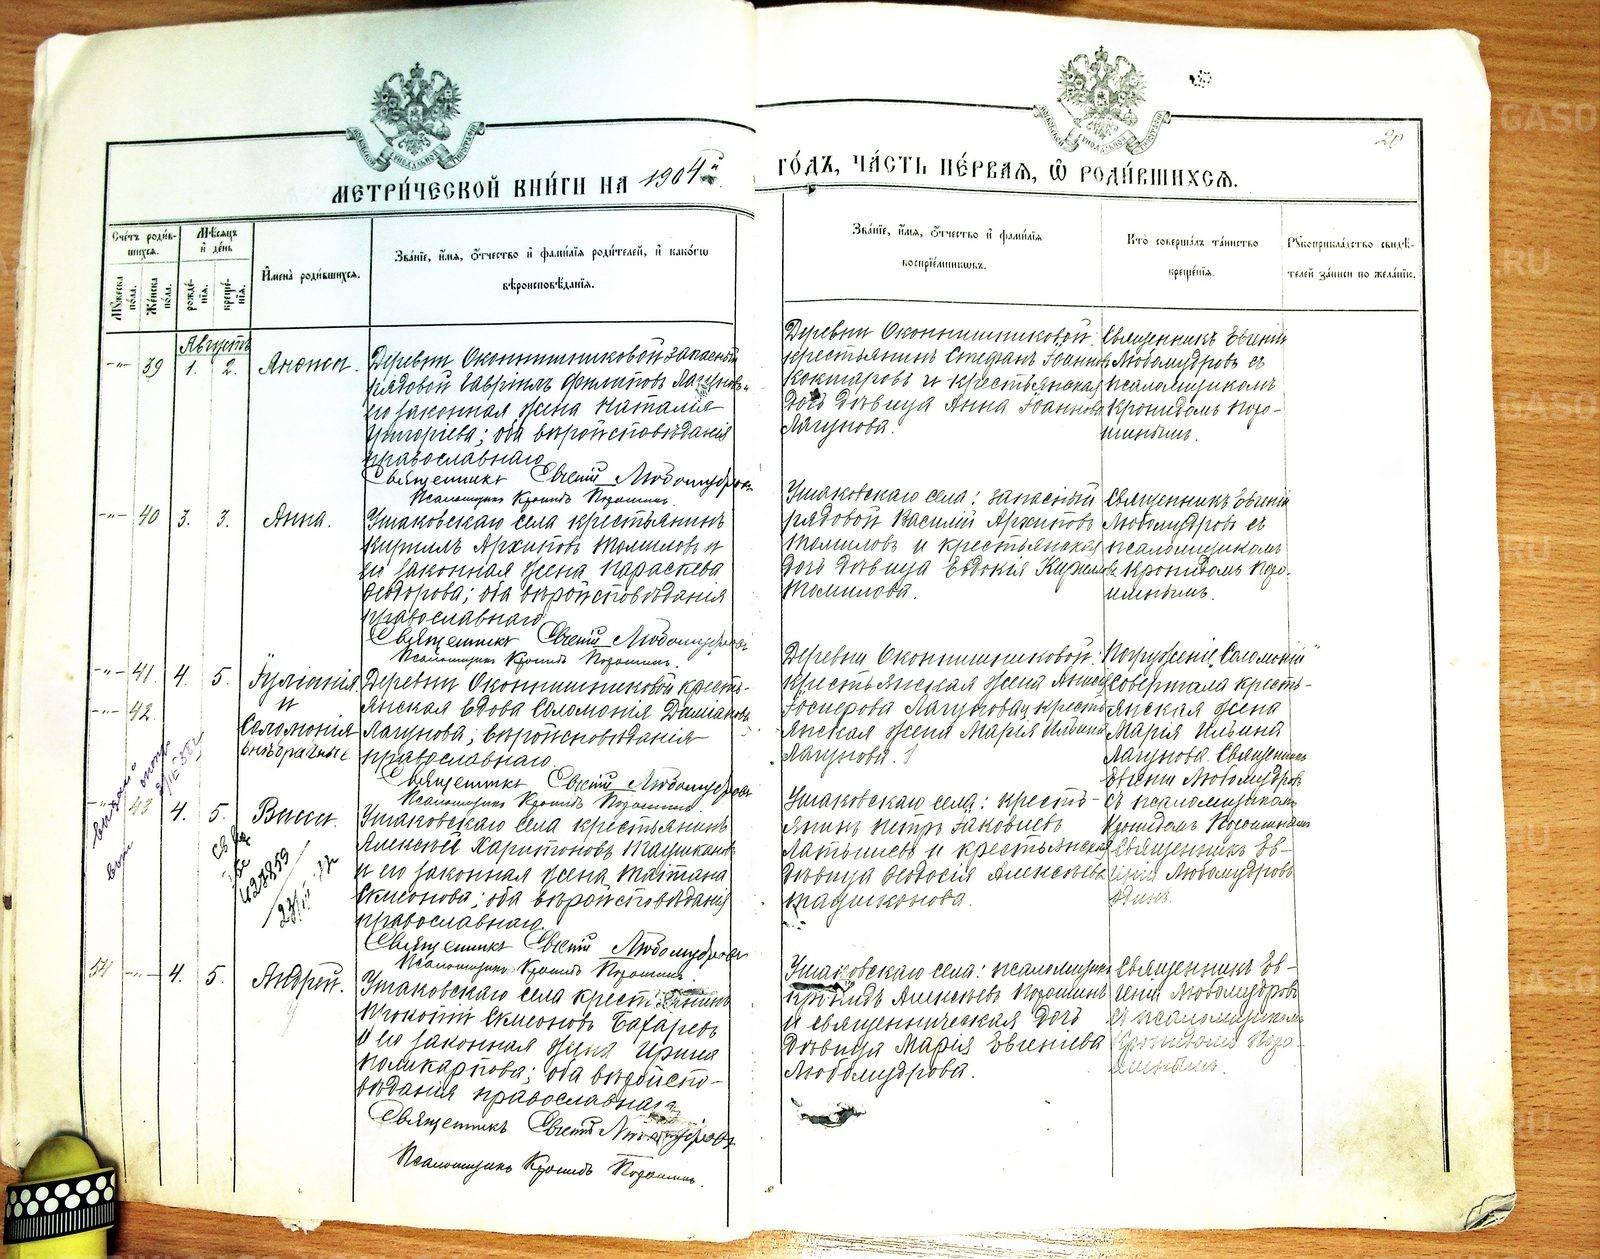 МЕТРИ́ЧЕСКОЙ КНИ́ГИ НА 1904й
ГО́ДЪ, ЧА́СТЬ ПЕ́РВАЯ, Ѡ҆ РОДИ́ВШИХСЯ.
20
Сче́тъ роди́в-
шихся.
Мꙋ́жеска по́ла.
Же́нска по́ла.
Мѣ́сяцъ
и҆ де́нь
рожде́-
нія.
креще́-
нія.
И҆мена̀ роди́вшихся.
Зва́ніе, и҆́мя, о҆́тчество и҆ фами́лія роди́телей, и҆ како́гѡ
вѣроисповѣ́данія.
Зва́ніе, и҆́мя, о҆́тчество и҆ фами́лія
воспріе́мникѡвъ.
Кто̀ соверша́лъ та́инство
креще́нія.
Рꙋкоприкла́дство свидѣ́-
телей за́писи по жела́нію.
Августъ
-"- 39 1. 2.
Деревни Оконишниковой запасный
рядовой Гавріилъ Филиповъ Лагуновъ
его законная жена Наталія
Григоріева; оба вѣроисповѣданія
православнаго.
Священникъ Евгеній Любомудровъ
Псаломщикъ Кронидъ
Деревни Оконишниковой
крестьянинъ Стефанъ Іоанновъ
и крестьянская
дочь дѣвица Анна Іоаннова
Лагунова.
Священникъ Евгеній
Любомудровъ съ
псаломщикомъ
Кронидомъ
-"- 40 3. 3. Анна.
Ушаковскаго села крестьянинъ
Кириллъ Архиповъ Томиловъ и
его законная жена Параскева
Феодорова; оба вѣроисповѣданія
православнаго.
Священникъ Евгеній Любомудровъ
Псаломщикъ Кронидъ
Ушаковскаго села: запасный
рядовой Василій Архиповъ
Томиловъ и крестьянская
дочь дѣвица Евдокія Кирилова
Томилова.
Священникъ Евгеній
Любомудровъ съ
псаломщикомъ
Кронидомъ
-"- 41. 4. 5. Іуліанія
и
-"- 42.
Соломонія
Деревни Оконишниковой кресть-
янская вдова Соломонія Даміанова
Лагунова; вѣроисповѣданія
православнаго.
Священникъ Евгеній Любомудровъ
Псаломщикъ Кронидъ
Деревни Оконишниковой:
крестьянская жена
Лагунова и кресть-
янская жена Марія Ильина
Лагунова.
Погруженіе „Соломоніи“
совершала кресть-
янская жена
Марія Ильина
Лагунова. Священникъ
Евгеній Любомудровъ
съ псаломщикомъ
Кронидомъ
-"- 43 4. 5. Васса.
427859
Ушаковскаго села крестьянинъ
Алексѣй Харитоновъ
и его законная жена Татіана
Симеонова; оба вѣроисповѣданія
православнаго.
Священникъ Евгеній Любомудровъ
Псаломщикъ Кронидъ
Ушаковскаго села: кресть-
янинъ Петръ Іаковлевъ
Латышевъ и крестьянская
дѣвица Ѳеодосія Алексѣева
Священникъ Ев-
геній Любомудровъ
единъ.
-"- 4. 5. Андрей.
Ушаковскаго села крестьянинъ
Прокопій Симеоновъ Бахаревъ
и его законная жена Ирина
Поликарпова; оба вѣроиспо-
вѣданія православнаго
Священникъ Евгеній Любомудровъ
Псаломщикъ Кронидъ
Ушаковскаго села: псаломщикъ
Кронидъ Алексѣевъ
и священническая дочь
дѣвица Марія Евгеніева
Любомудрова.
Священникъ Ев-
геній Любомудровъ
съ псаломщикомъ
Кронидомъ